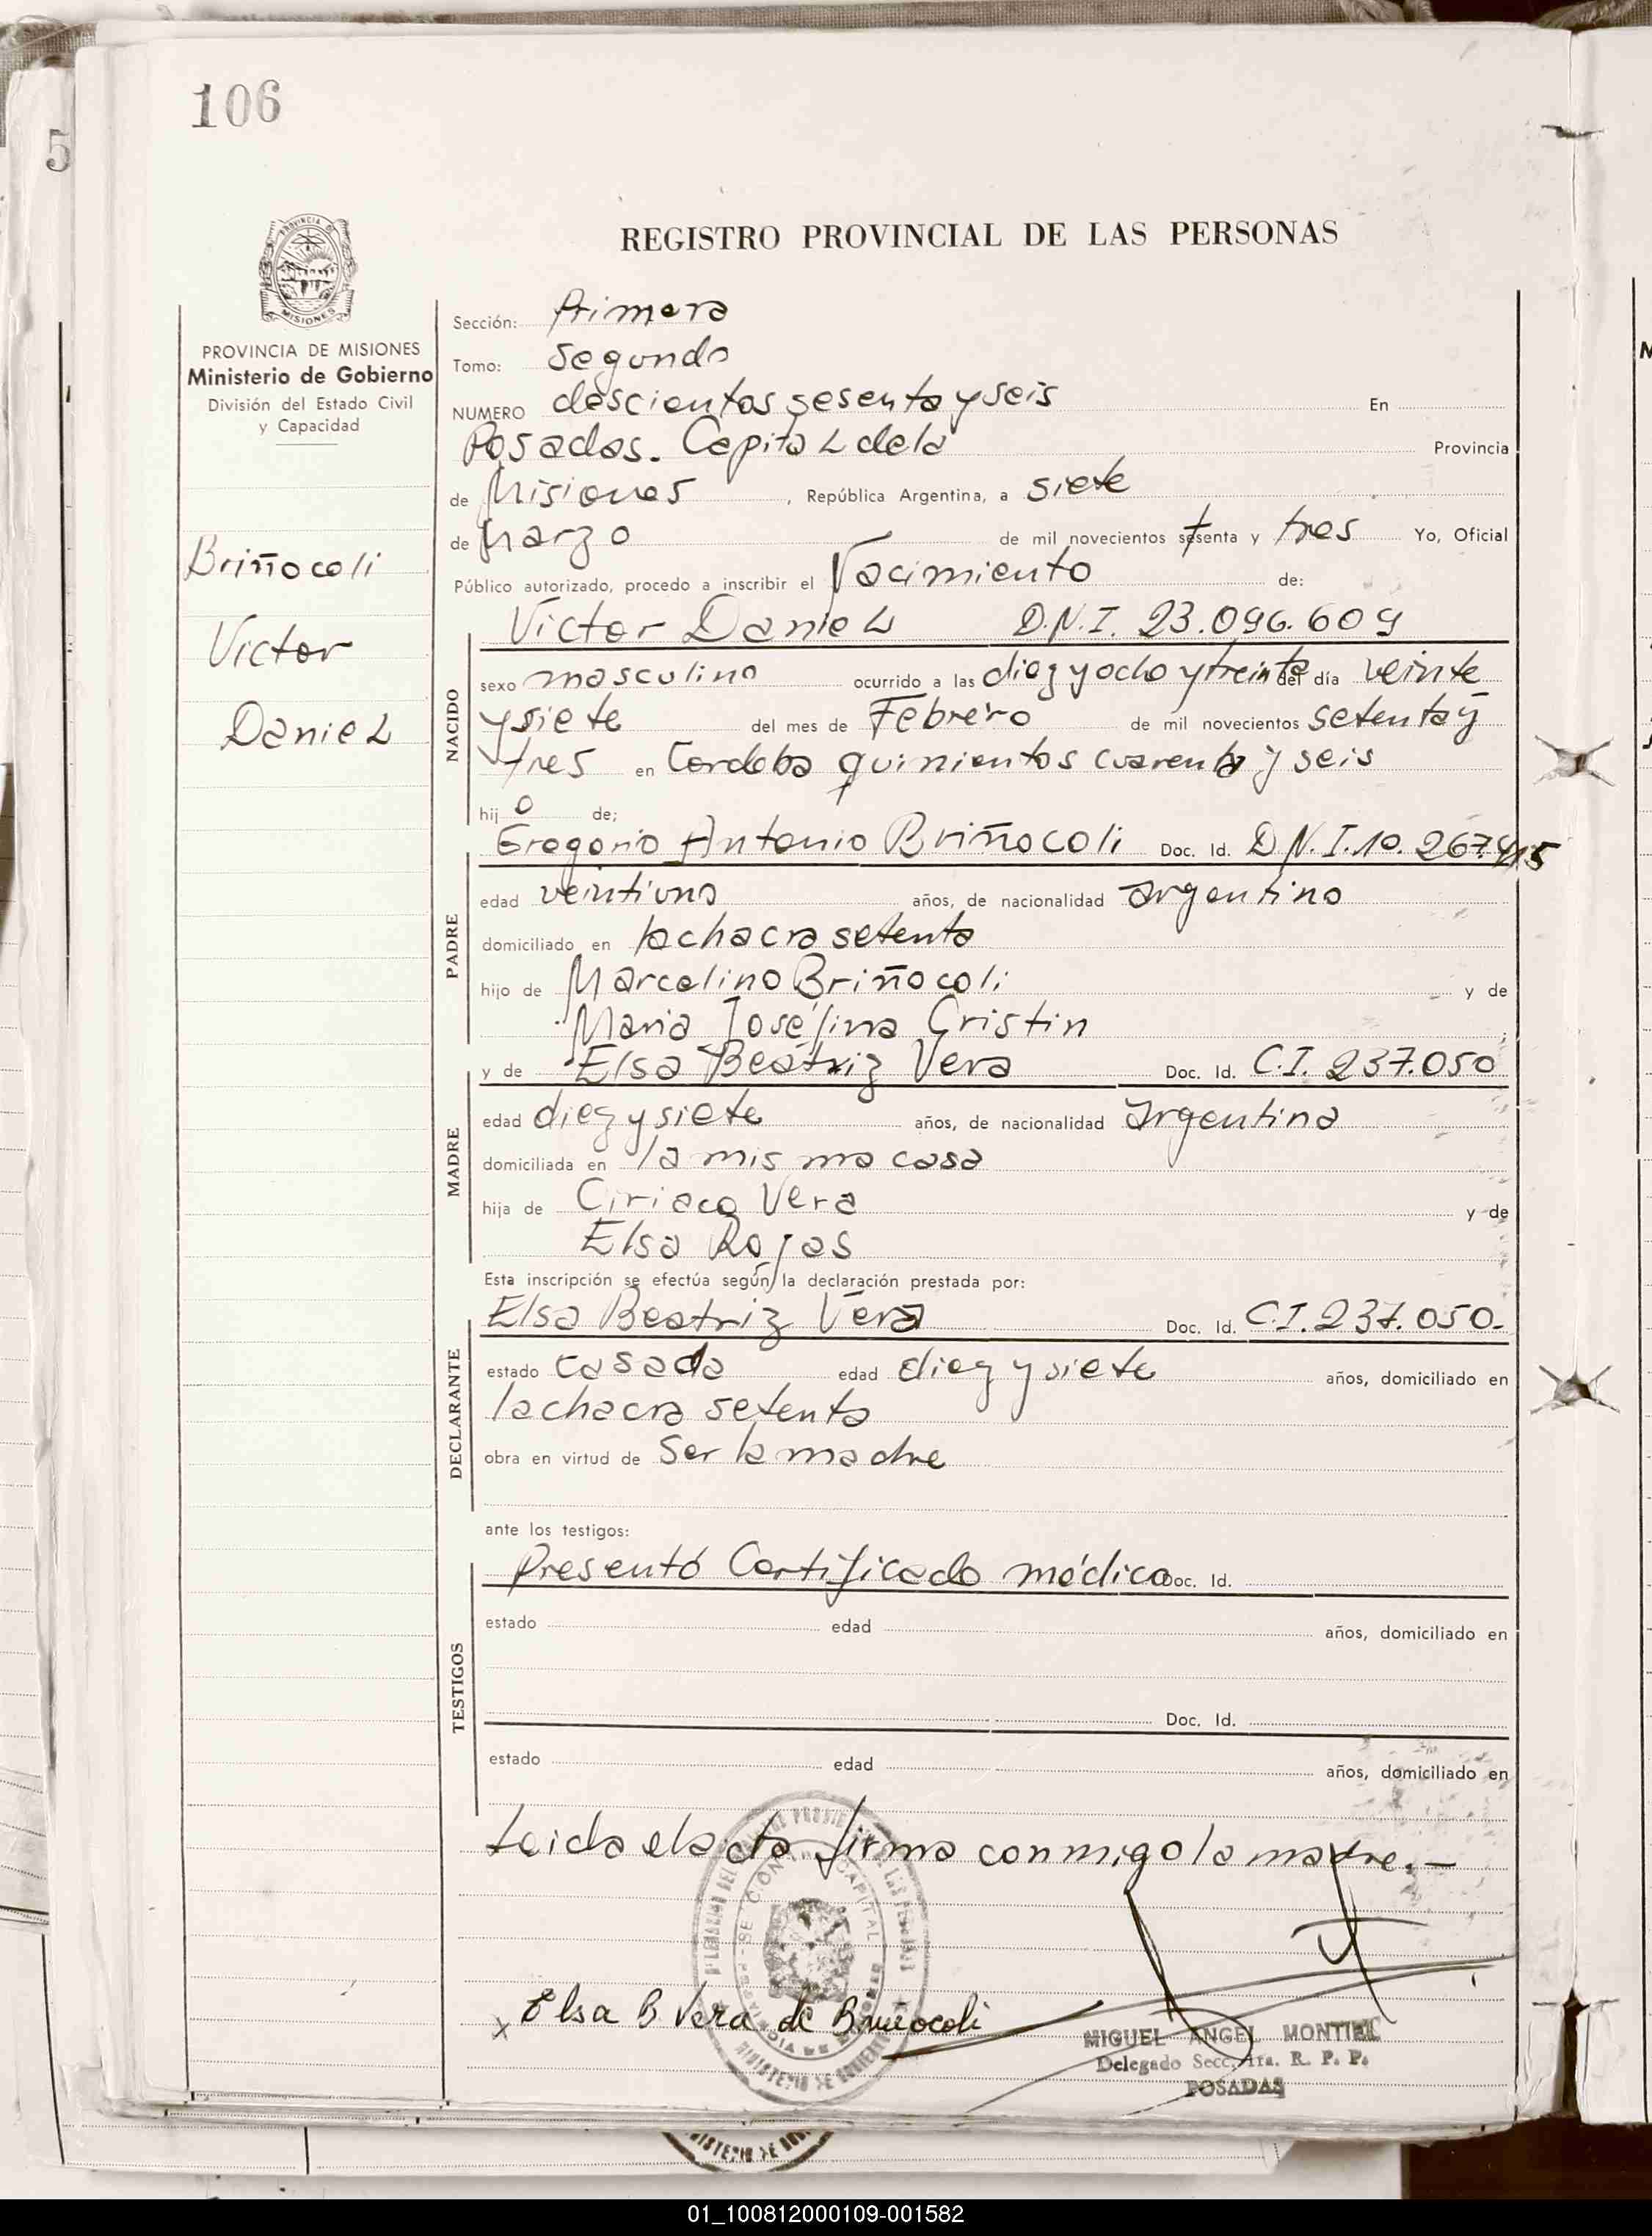 106
5
REGISTRO PROVINCIAL DE LAS PERSONAS
PROVINCIA DE MISIONES
Ministerio de Gobierno
División del Estado Civil
y Capacidad
Briñocoli
Victor
Daniel
Sección: Primera
Tomo: Segundo
NUMERO doscientos sesenta y seis En
Posadas. Capital de la Provincia
de Misiones, República Argentina, a siete
de Marzo de mil novecientos setenta y tres Yo, Oficial
Público autorizado, procedo a inscribir el Nacimiento de:
Victor Daniel D.N.I. 23.096.609
NACIDO
sexo masculino ocurrido a las diez y ocho y treinta del día veinte
y siete del mes de Febrero de mil novecientos setenta y
tres en Cordoba quinientos cuarenta y seis
hij o de;
Gregorio Antonio Briñocoli Doc. Id. D.N.I. 10.267.415
PADRE
edad veintiuno años, de nacionalidad argentino
domiciliado en la chacra setenta
hijo de Marcelino Briñocoli y de
Maria Josefina Cristin
y de Elsa Beatriz Vera Doc. Id. C.I. 237.050
MADRE
edad diez y siete años, de nacionalidad argentina
domiciliada en la misma casa
hija de Ciriaco Vera y de
Elsa Rojas
Esta inscripción se efectúa según la declaración prestada por:
Elsa Beatriz Vera Doc. Id. C.I. 237.050.-
DECLARANTE
estado casada edad diez y siete años, domiciliado en
la chacra setenta
obra en virtud de Ser la madre
ante los testigos:
Presentó Certificado médico Doc. Id.
TESTIGOS
estado edad años, domiciliado en
Doc. Id.
estado edad años, domiciliado en
Leida el acta firma conmigo la madre.-
x Elsa B. Vera de Briñocoli
MIGUEL ANGEL MONTIEL
Delegado Secc. 1ra. R. P. P.
POSADAS
01_100812000109-001582